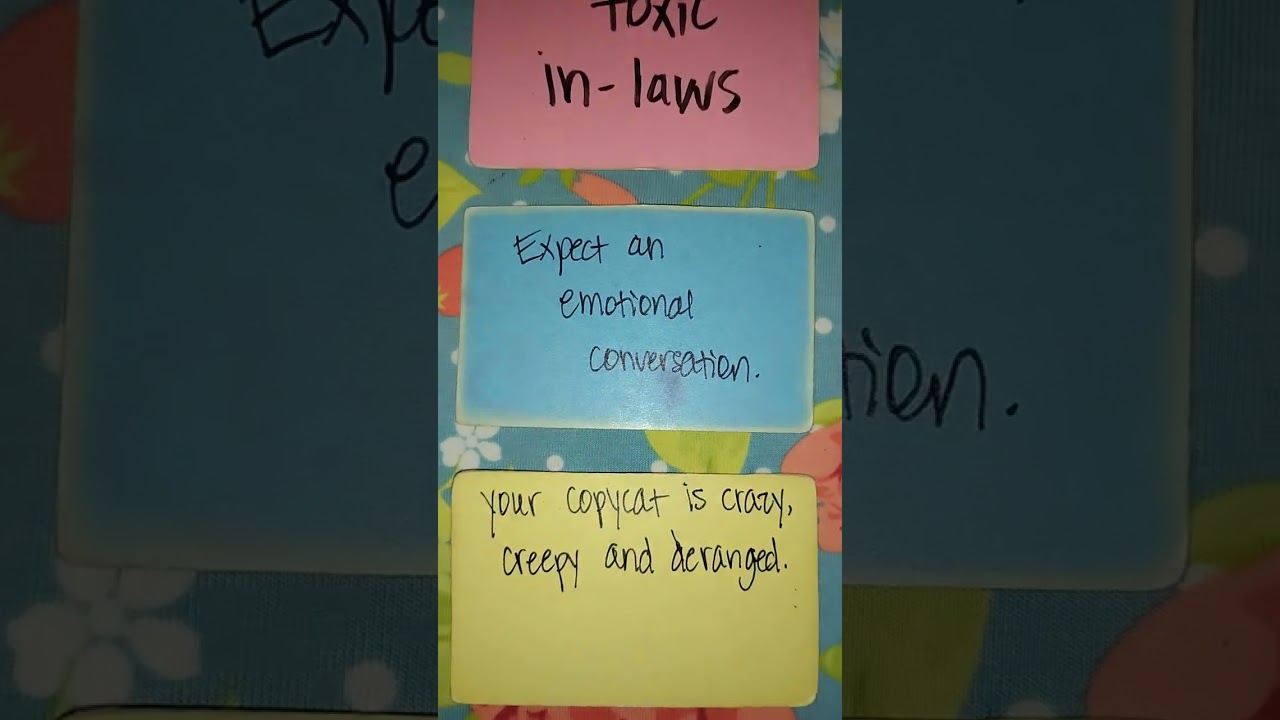 Expe
toxic
in-laws
e
Expect an
emotional
conversation.
tion.
your copycat is crazy,
creepy and deranged.